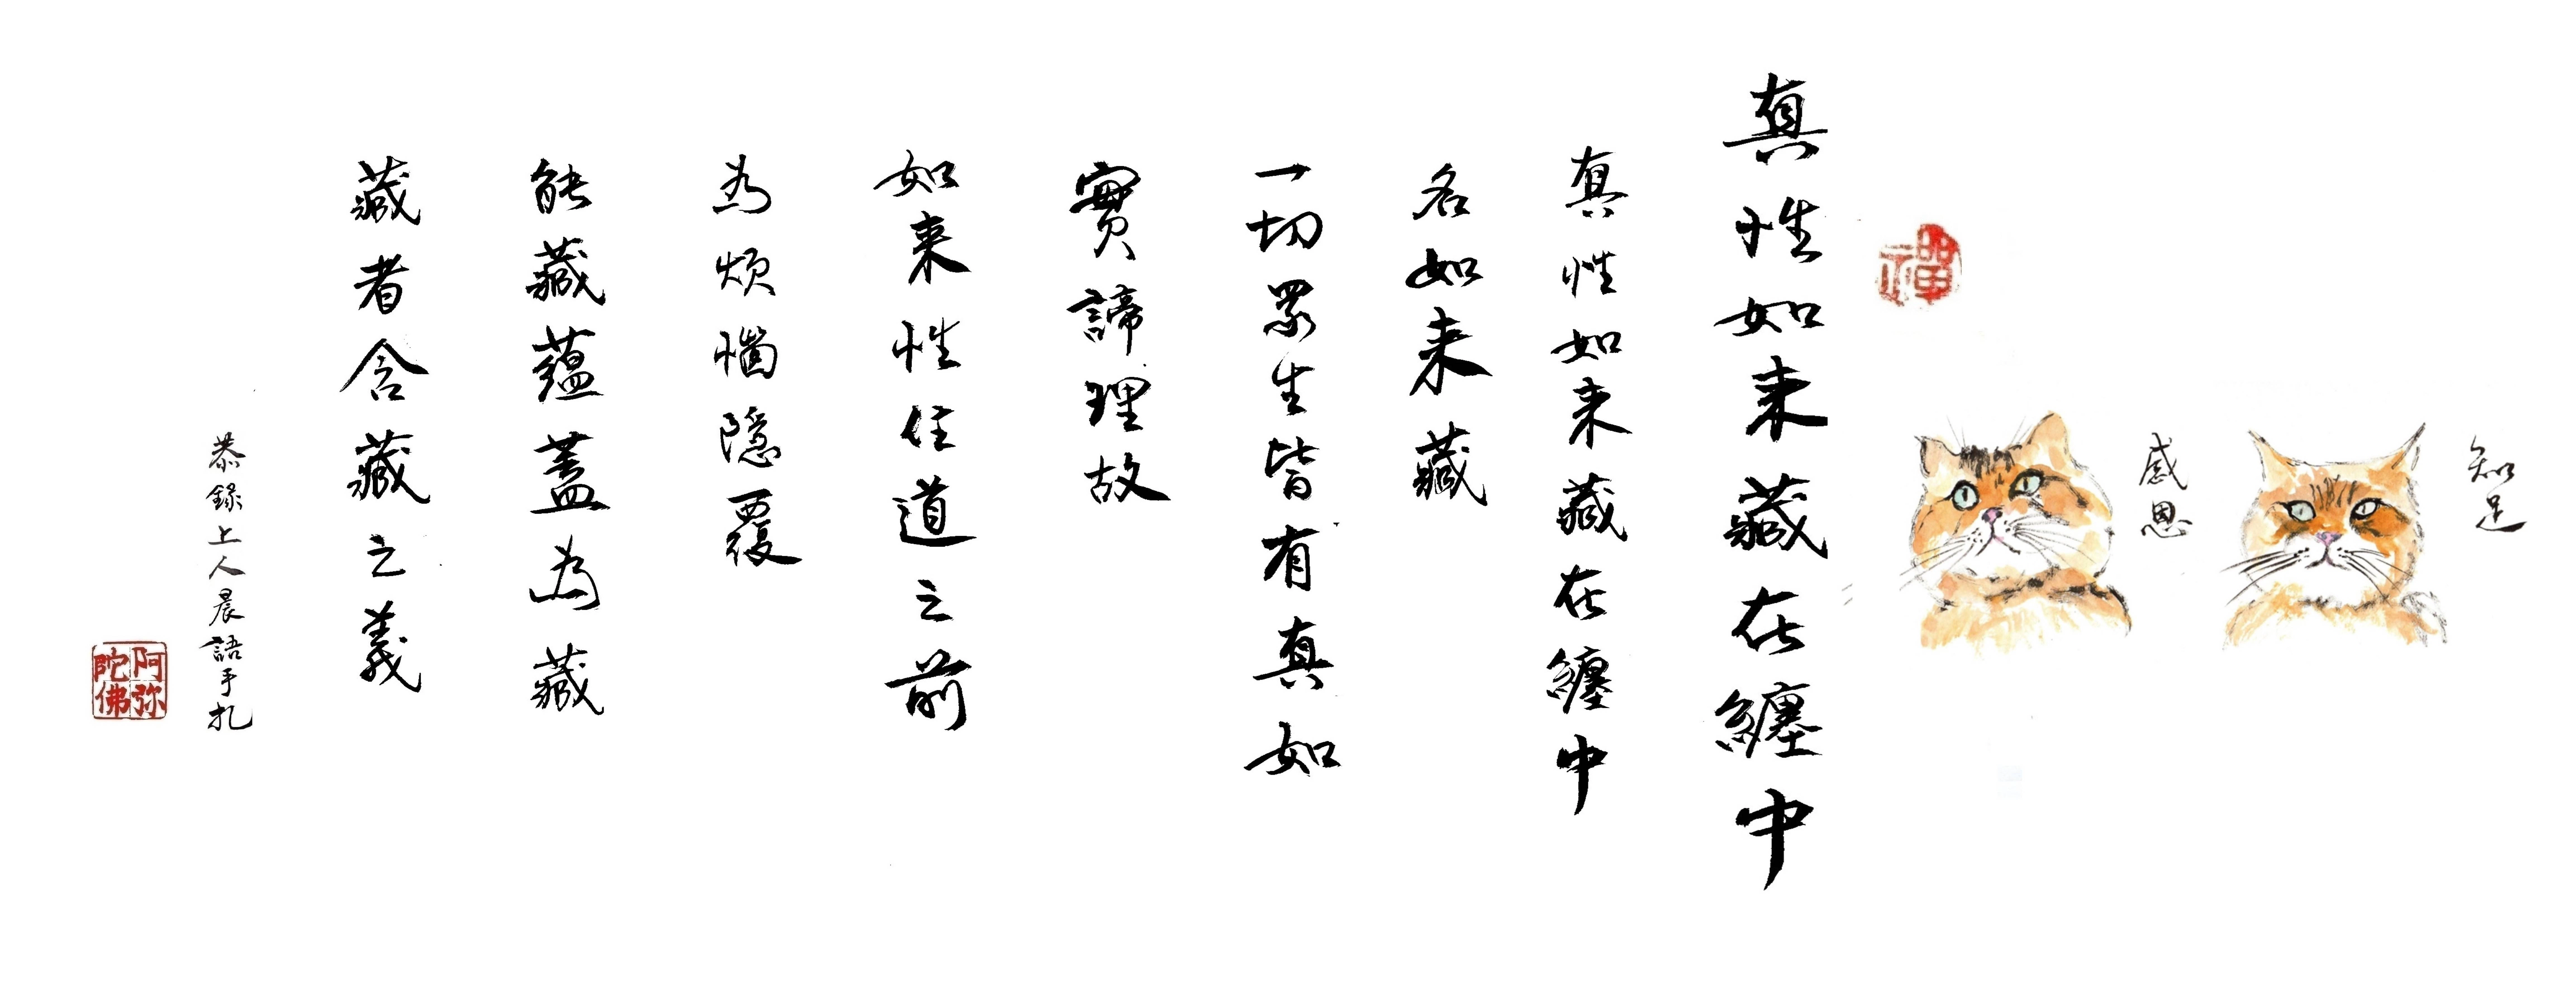 知足
感恩
禪
真性如来藏在纏中
真性如来藏在纏中
名如来藏
一切眾生皆有真如
實諦理故
如来性住道之前
為煩惱隱覆
能藏蘊蓋為藏
藏者含藏之義
恭錄上人晨語手扎
阿弥
陀佛